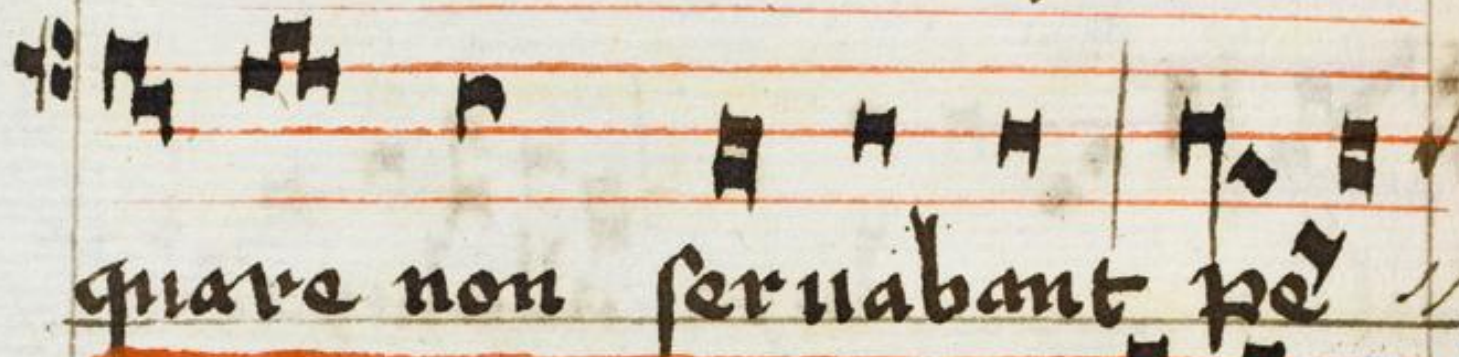 quare non seruabant pe